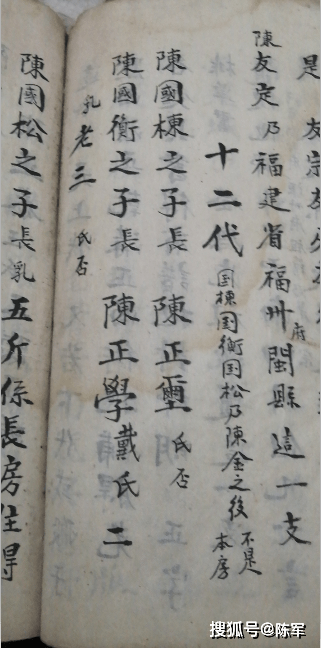 是友宗友
陳友定乃福建省福州府閩縣這一支
十二代 国棟国衡国松乃陳金之後不是本房
陳國棟之子長 陳正璽 氏否
陳國衡之子長 陳正學戴氏 二
乳老三 氏否
陳國松之子長乳五斤係長房住得
搜狐号@陈军